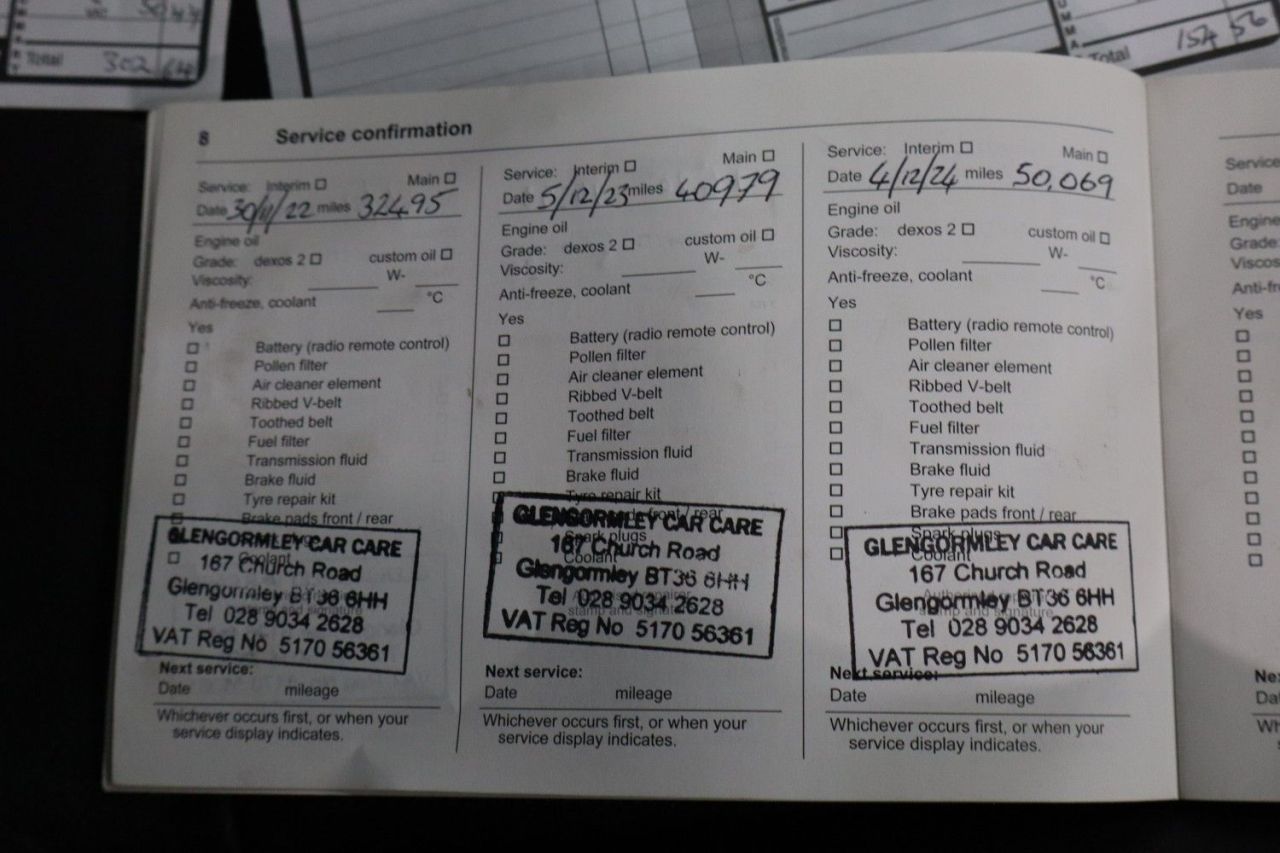 Total 302 64
Total 154 56
8 Service confirmation
Service: Interim ☐ Main ☐
Date 30/11/22 miles 32495
Engine oil
Grade: dexos 2 ☐ custom oil ☐
Viscosity: W-
Anti-freeze, coolant °C
Yes
☐ Battery (radio remote control)
☐ Pollen filter
☐ Air cleaner element
☐ Ribbed V-belt
☐ Toothed belt
☐ Fuel filter
☐ Transmission fluid
☐ Brake fluid
☐ Tyre repair kit
☐ Brake pads front / rear
☐ Coolant
GLENGORMLEY CAR CARE
167 Church Road
Glengormley BT36 6HH
Tel 028 9034 2628
VAT Reg No 5170 56361
Next service:
Date mileage
Whichever occurs first, or when your
service display indicates.
Service: Interim ☐ Main ☐
Date 5/12/23 miles 40979
Engine oil
Grade: dexos 2 ☐ custom oil ☐
Viscosity: W-
Anti-freeze, coolant °C
Yes
☐ Battery (radio remote control)
☐ Pollen filter
☐ Air cleaner element
☐ Ribbed V-belt
☐ Toothed belt
☐ Fuel filter
☐ Transmission fluid
☐ Brake fluid
☐ Tyre repair kit
☐ Brake pads front / rear
☐ Spark plugs
☐ Coolant
stamp and signature
GLENGORMLEY CAR CARE
167 Church Road
Glengormley BT36 6HH
Tel 028 9034 2628
VAT Reg No 5170 56361
Next service:
Date mileage
Whichever occurs first, or when your
service display indicates.
Service: Interim ☐ Main ☐
Date 4/12/24 miles 50,069
Engine oil
Grade: dexos 2 ☐ custom oil ☐
Viscosity: W-
Anti-freeze, coolant °C
Yes
☐ Battery (radio remote control)
☐ Pollen filter
☐ Air cleaner element
☐ Ribbed V-belt
☐ Toothed belt
☐ Fuel filter
☐ Transmission fluid
☐ Brake fluid
☐ Tyre repair kit
☐ Brake pads front / rear
☐ Spark plugs
☐ Coolant
stamp and signature
GLENGORMLEY CAR CARE
167 Church Road
Glengormley BT36 6HH
Tel 028 9034 2628
VAT Reg No 5170 56361
Next service:
Date mileage
Whichever occurs first, or when your
service display indicates.
Service
Date
Engine
Grade:
Viscos
Anti-fr
Yes
Ne
Da